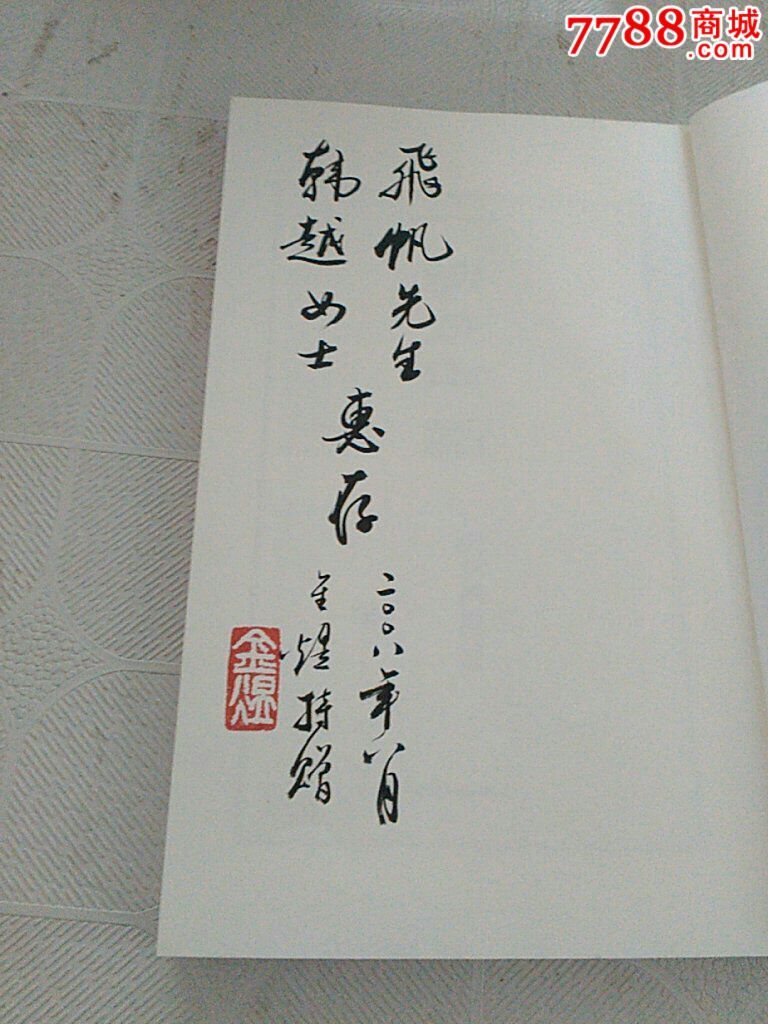 7788商城
.com
飛帆先生
韩越女士
惠存
二〇〇八年八月
金煜持赠
金煜